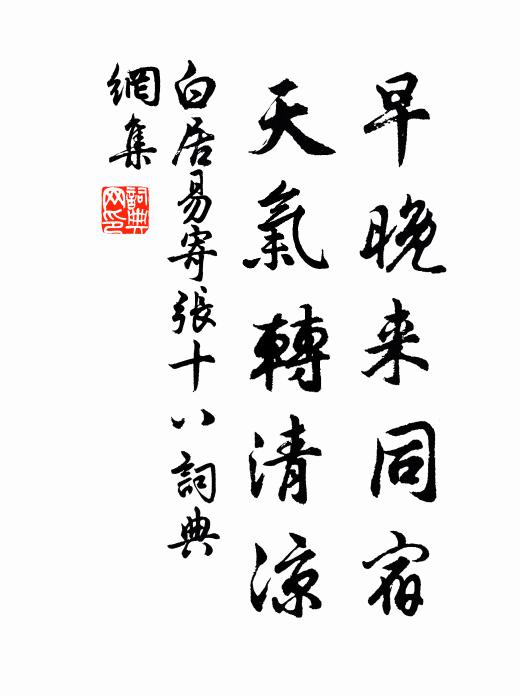 早晚来同宿
天氣轉清涼
白居易寄張十八詞典
網集
詞典
网印